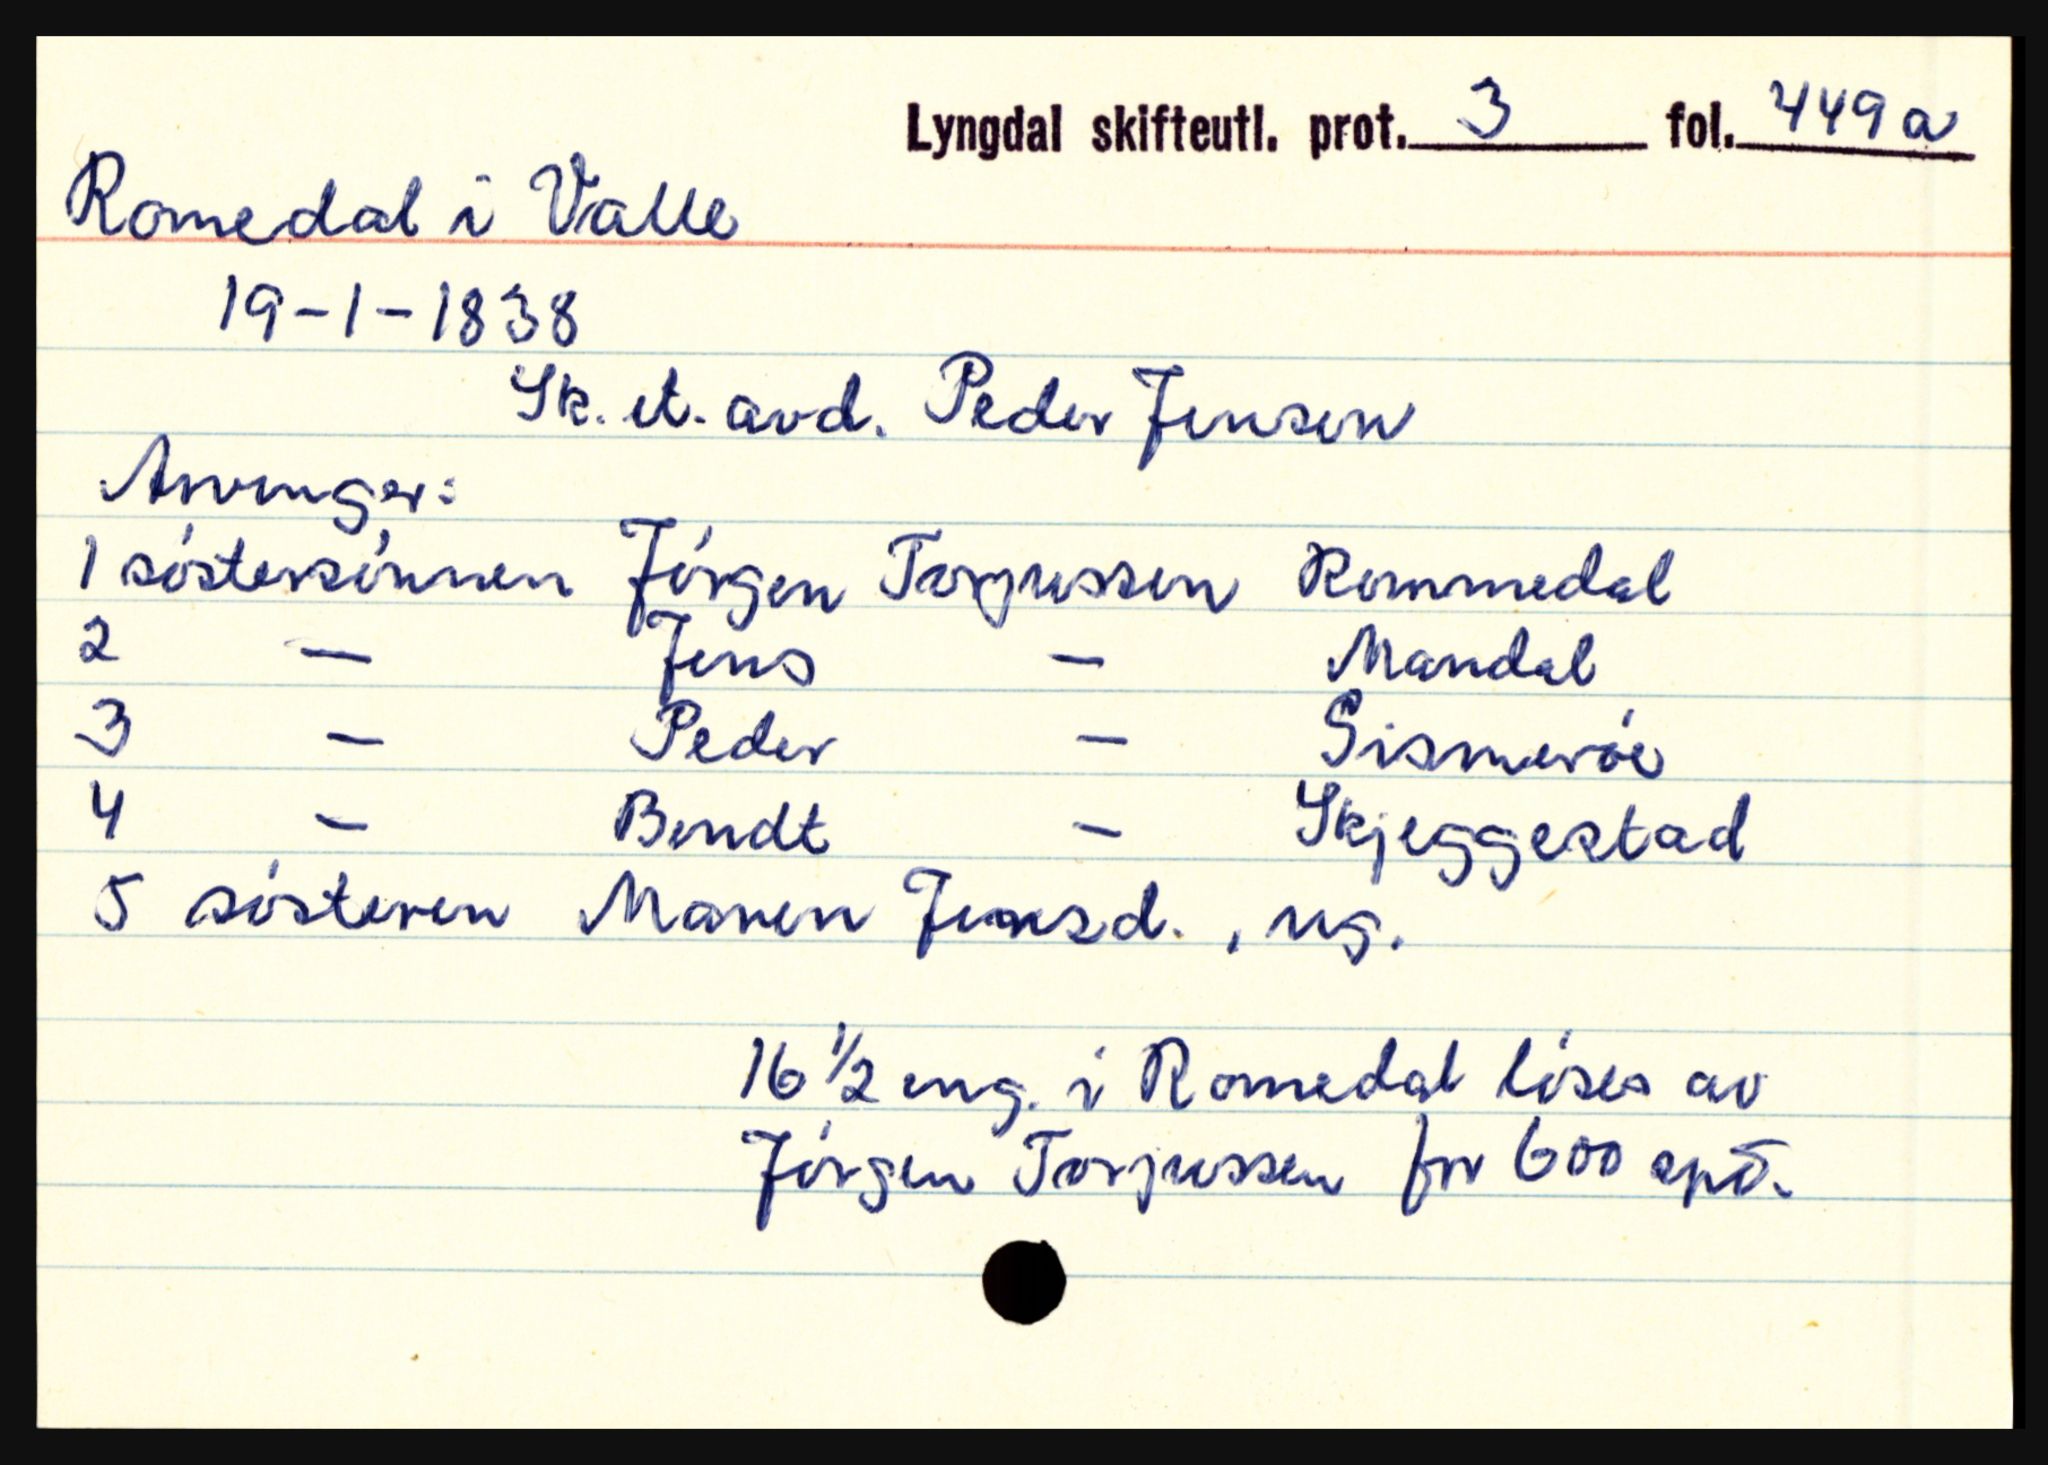 Lyngdal skifteutl. prot. 3 fol. 449a
Romedal i Valle
19-1-1838
Sk. et. avd. Peder Jensen
Arvinger:
1 söstersönnen Jörgen Torjussen Rommedal
2 — Jens — Mandal
3 — Peder — Sismeröe
4 — Bendt — Skjeggestad
5 sösteren Maren Jensd., ug.
16 1/2 eng. i Romedal löses av
Jörgen Torjussen for 600 spd.